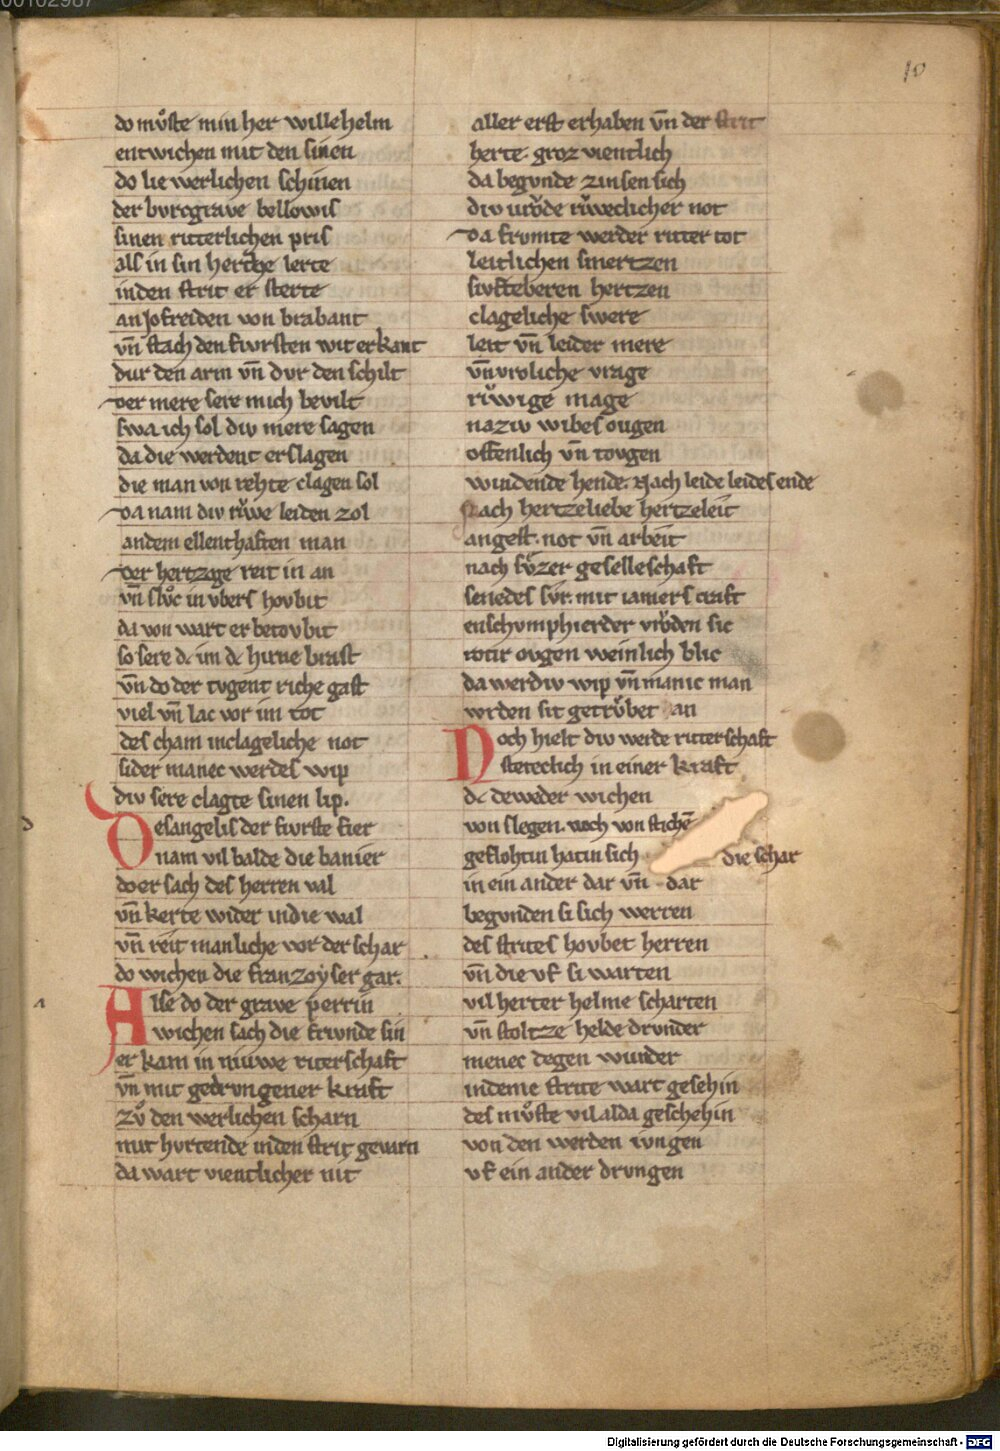 00102987
10
do mvͦste min her willehelm
entwichen mit den sinen
do lie werlichen schinen
der bvrcgrave bellowis
sinen ritterlichen pris
als in sin hertze lerte
inden strit er sterte
an Jofreiden von brabant
vn̄ stach den fvrsten wit erkant
dur den arm vn̄ dvr den schilt
der mere sere mich bevilt
swa ich sol div mere sagen
da die werdent erslagen
die man von rehte clagen sol
da nam div rv̍we leiden zol
andem ellenthaften man
der hertzoge reit in an
vn̄ slvͦc in vbers hovbit
da von wart er betovbit
so sere dc im dc hirne brast
vn̄ do der tvgent riche gast
viel vn̄ lac vor im tot
des cham inclageliche not
sider manec werdes wip
div sere clagte sinen lip.
Desangelis der fvrste fier
nam vil balde die banier
do er sach des herren val
vn̄ kerte wider indie wal
vn̄ reit manliche vor der schar
do wichen die franzoyser gar.
Alse do der grave perrin
wichen sach die frvnde sin
er kam in niuwe riterschaft
vn̄ mit gedrvngener kraft
zvͦ den werlichen scharn
mit hvrtende inden strit gevarn
da wart vientlicher nit
aller erst erhaben vn̄ der strit
herte. groz vientlich
da begvnde zinsen sich
div vrv̍de rv̍weclicher not
da frvmte werder ritter tot
leitlichen smertzen
sivfteberen hertzen
clageliche swere
leit vn̄ leider mere
vn̄vroliche vrage
rv̍wige mage
naziv wibes ougen
offenlich vn̄ tovgen
windende hende. Nach leide leides ende
Nach hertzeliebe hertzeleit
angest. not vn̄ arbeit
nach svͤzer geselleschaft
senedes svr. mit iamers craft
enschvmphierder vrv̍den sic
rotir ovgen weinlich blic
da werdiv wip vn̄ manic man
wrden sit getrvͤbet an
Noch hielt div werde ritterschaft
stereclich in einer kraft
dc deweder wichen
von slegen. noch von stichē
geflohtin hatin sich die schar
in ein ander dar vn̄ dar
begvnden si sich werren
des strites hovbet herren
vn̄ die vf si warten
vil herter helme scharten
vn̄ stoltze helde drvnder
menec degen wunder
indeme strite wart gesehin
des mvͦste vil alda geschehin
von den werden ivngen
vf ein ander drvngen
Digitalisierung gefördert durch die Deutsche Forschungsgemeinschaft - DFG